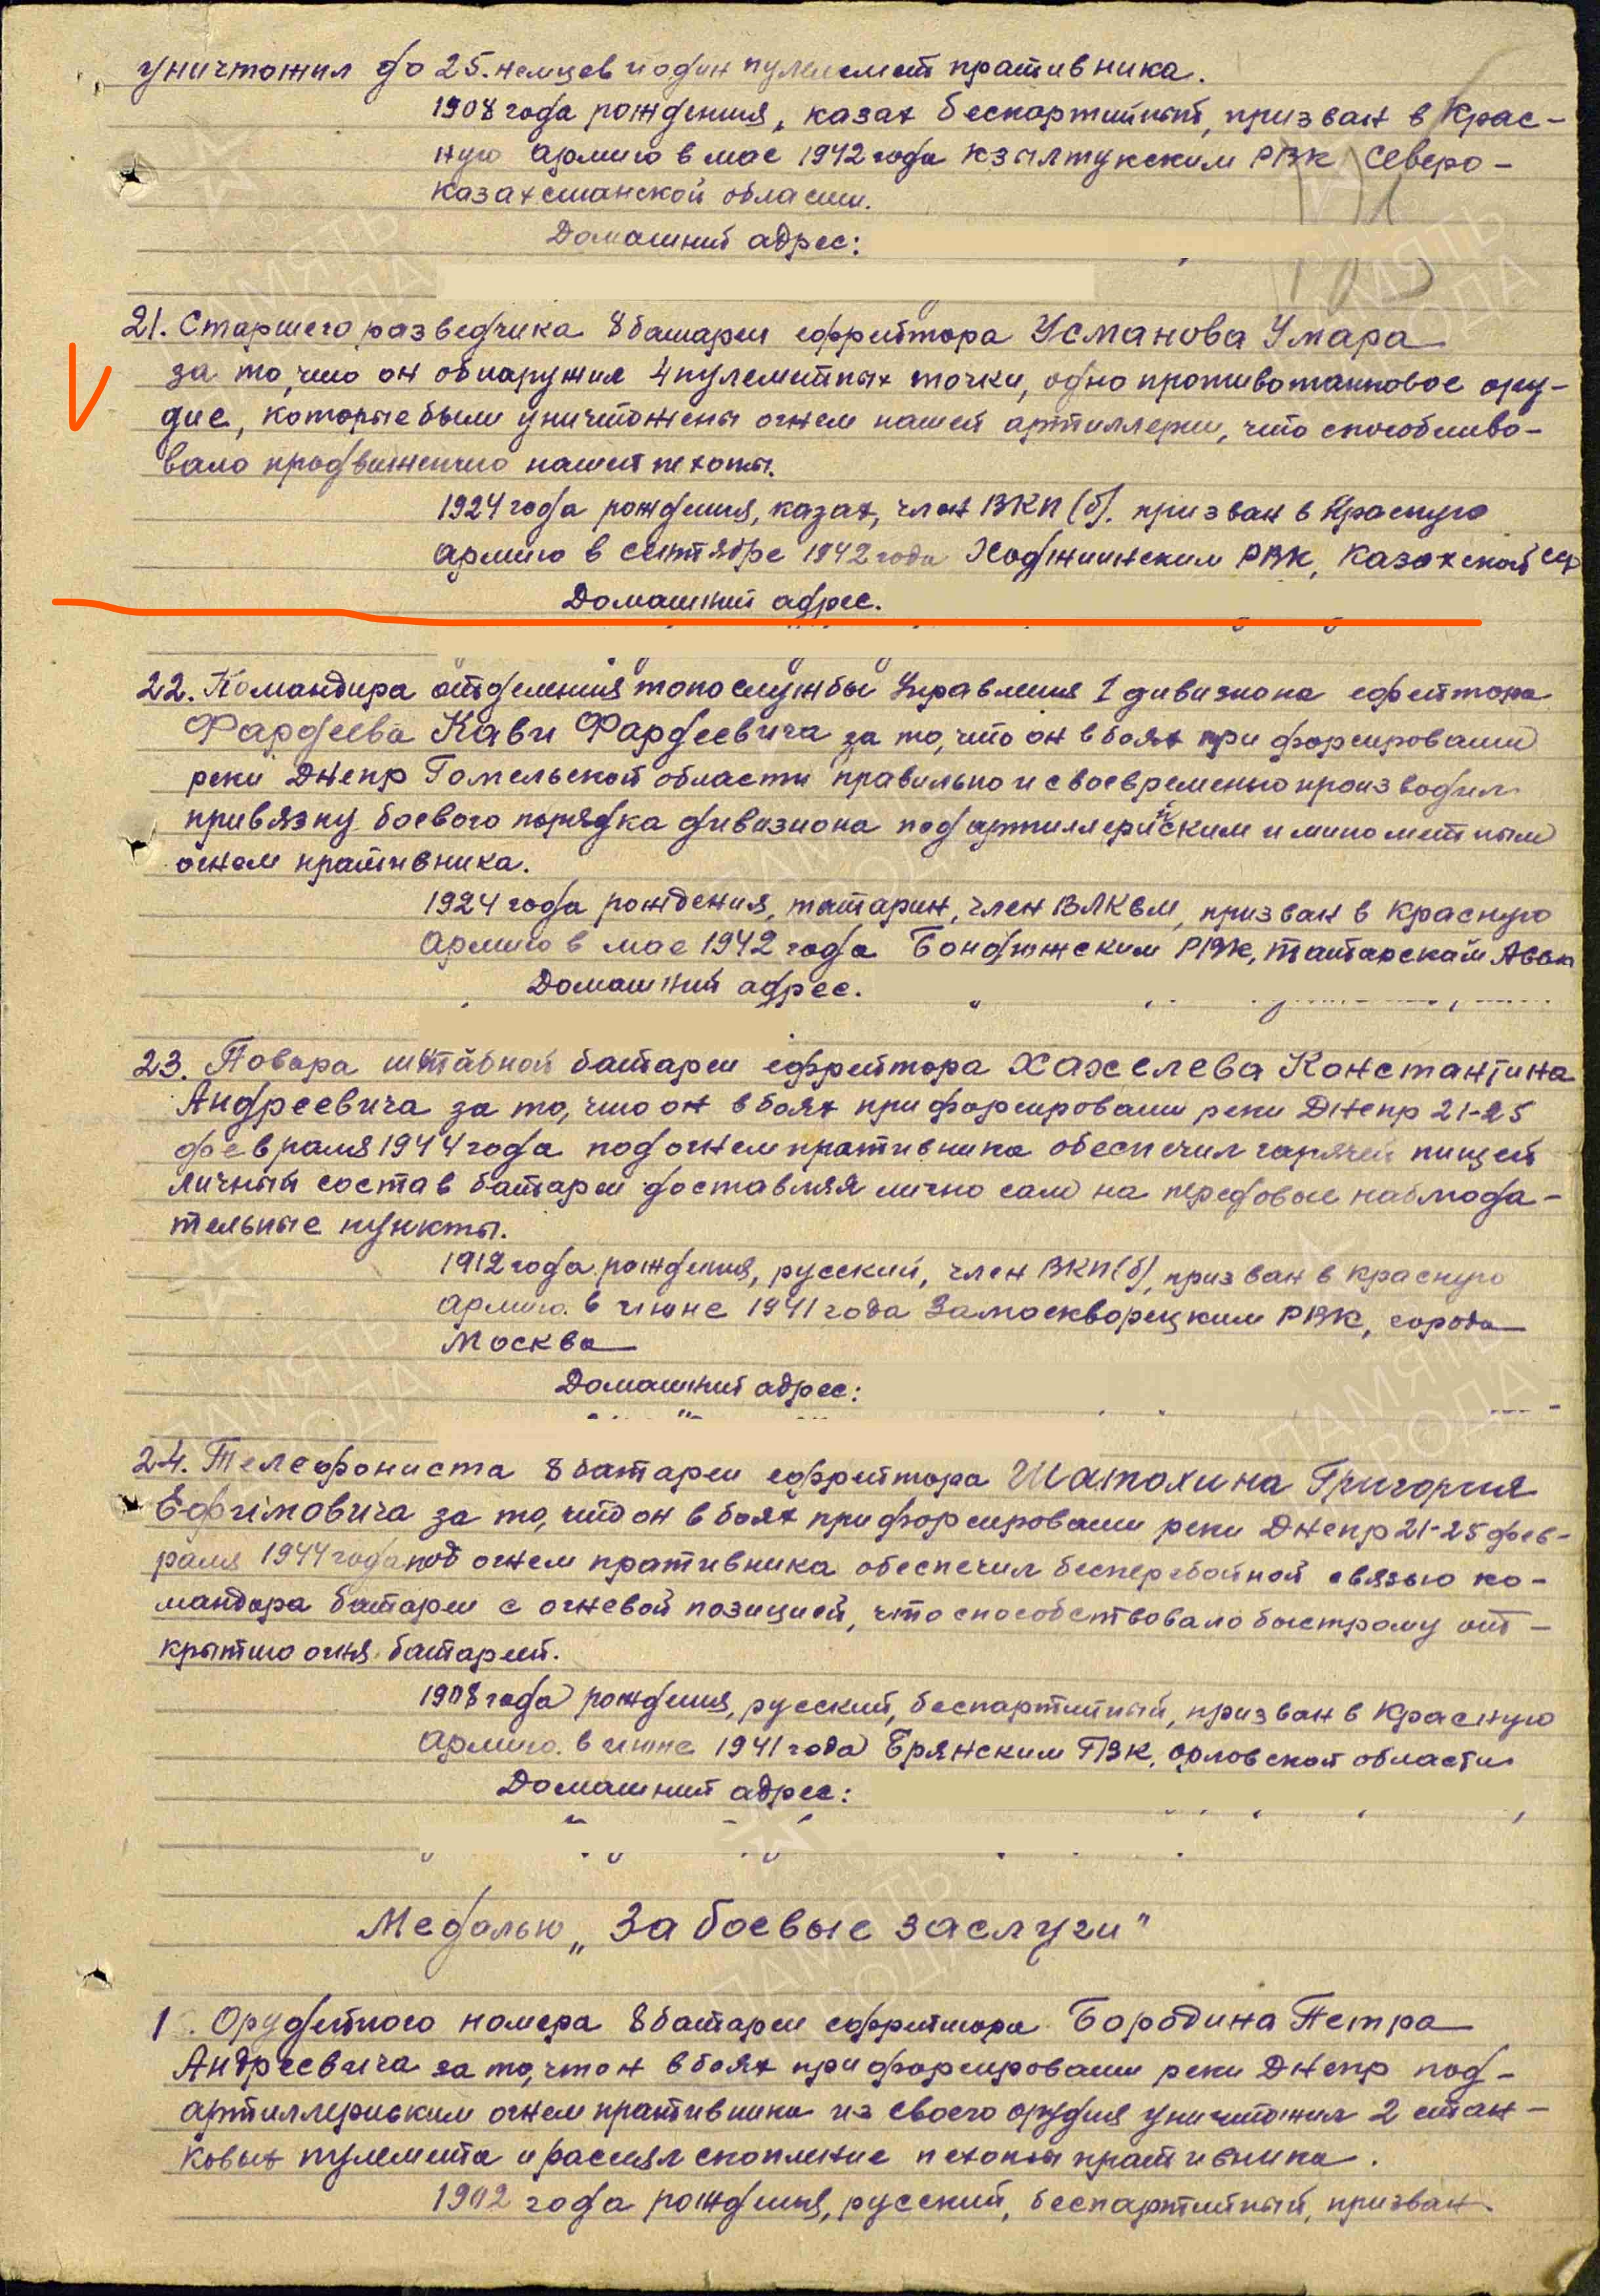 уничтожил до 25. немцев и один пулемет пративника.
1908 года рождения, казах беспартийный, призван в Крас-
ную армию в мае 1942 года Кзылтукским РВК Северо-
казахстанской области.
Домашний адрес:
21. Старшего разведчика 8 батареи ефрейтора Усманова Умара
за то, что он обнаружил 4 пулеметных точки, одно противотанковое ору-
дие, которые были уничтожены огнем нашей артиллерии, что способливо-
вало продвижению нашей пехоты.
1924 года рождения, казах, член ВКП(б). призван в Красную
армию в сентябре 1942 года РВК, Казахской ССР
Домашний адрес.
22. Командира отделения топослужбы Управления 1 дивизиона ефрейтора
Фардеева Кави Фардеевича за то, что он в боях при форсировании
реки Днепр Гомельской области правильно и своевременно производил
привязку боевого порядка дивизиона под артиллерийским и минометным
огнем пративника.
1924 года рождения, татарин, член ВЛКСМ, призван в Красную
Армию в мае 1942 года Бондюжским РВК, Татарской
Домашний адрес.
23. Повара штабной батареи ефрейтора Хахелева Константина
Андреевича за то, что он в боях при форсировании реки Днепр 21-25
февраля 1944 года под огнем пративника обеспечил горячей пищей
личный состав батареи доставляя лично сам на передовые наблюда-
тельные пункты.
1912 года рождения, русский, член ВКП(б), призван в Красную
Армию. в июне 1941 года Замоскворецким РВК, города
Москва
Домашний адрес:
24. Телефониста 8 батареи ефрейтора Шатохина Григория
Ефимовича за то, что он в боях при форсировании реки Днепр 21-25 фев-
раля 1944 года под огнем пративника обеспечил бесперебойной связью ко-
мандира батареи с огневой позицией, что способствовало быстрому от-
крытию огня батареей.
1908 года рождения, русский, беспартийный, призван в Красную
Армию. в июне 1941 года Брянским ГВК, Орловской области
Домашний адрес:
Медалью „За боевые заслуги"
1. Орудейного номера 8 батареи ефрейтора Бородина Петра
Андреевича за то, что он в боях при форсировании реки Днепр под-
артиллериским огнем пративника из своего орудия уничтожил 2 стан-
ковых пулемета и рассеял скопление пехоты пративника.
1902 года рождения, русский, беспартийный, призван